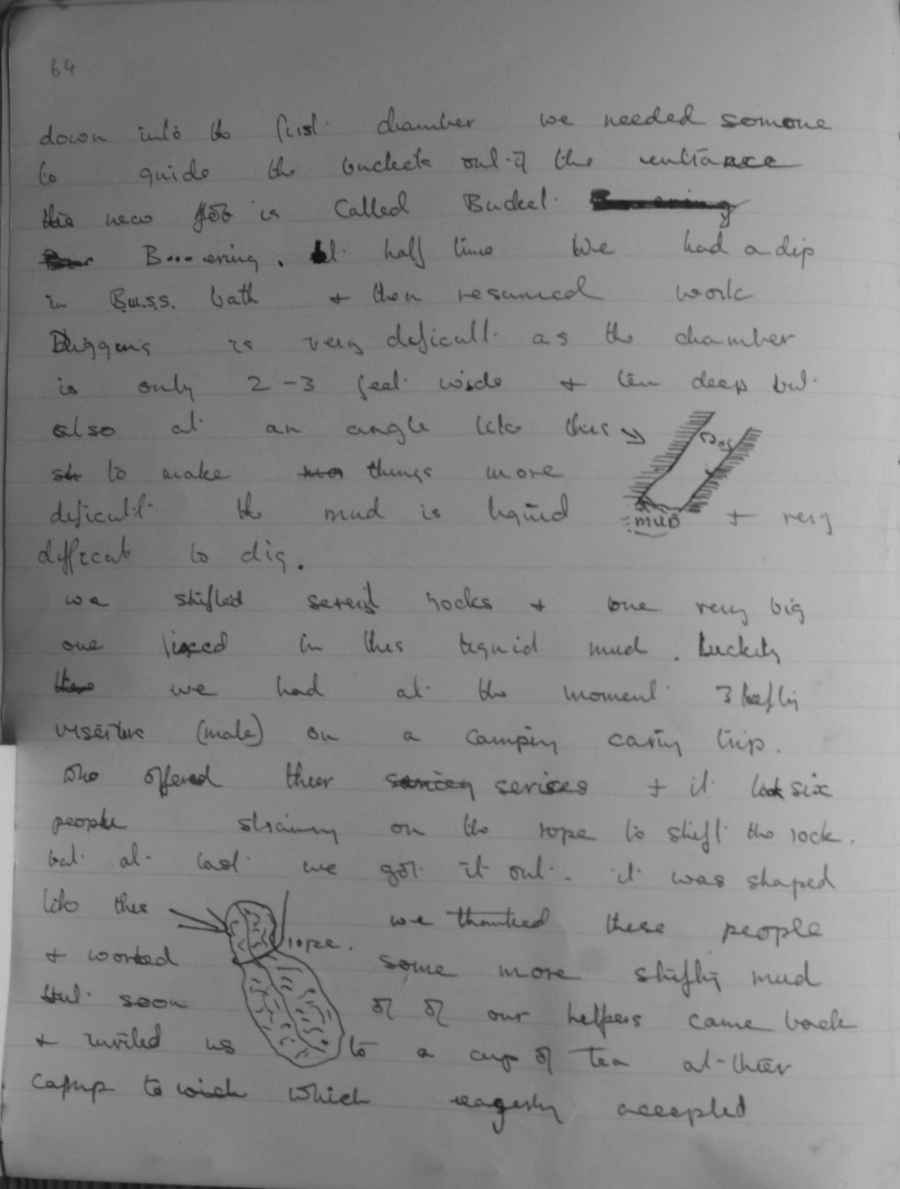 64
down into the first chamber we needed somone
to guide the buckets out of the entrance
the new job is Called Bucket
B... ering. At half time We had a dip
in Buss. bath + then resumed work
Digging is very deficult as the chamber
is only 2-3 feet wide + ten deep but
also at an angle like this
to make things more
deficult the mud is liquid MUD + very
difficat to dig.
we shifted severl rocks + one very big
one in this liquid mud. Luckily
we had at the moment 3 hefty
(male) on a camping caving trip.
who offered their serises + it took six
people straining on the rope to shift the rock.
but at last we got it out. it was shaped
like this rope. we thanked these people
+ worked some more shifting mud
but soon of of our helpers came back
+ invited us to a cup of Tea at theer
camp to which eagerly accepted